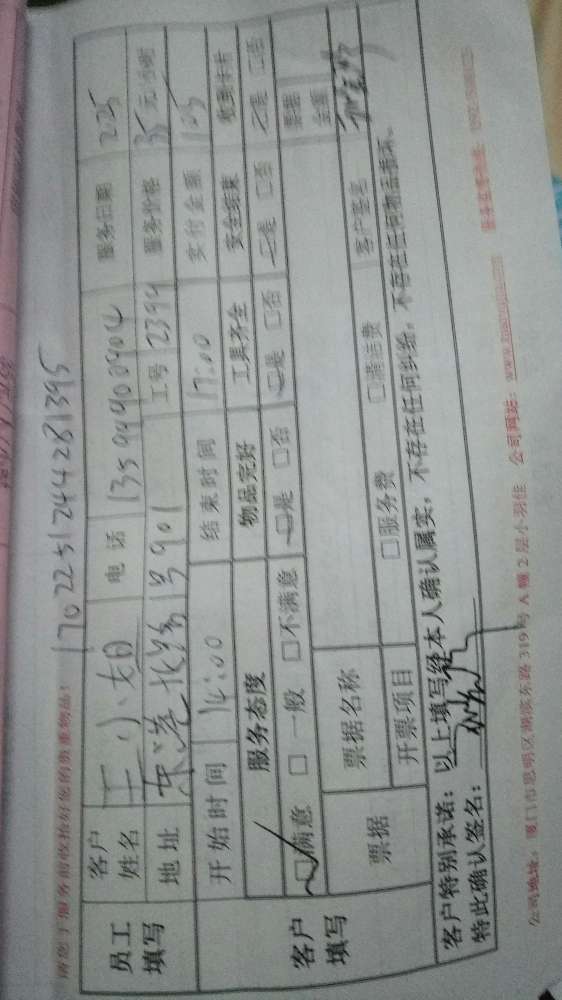 请您于服务前收拾好您的贵重物品!
1702251244281395
员工填写
客户姓名 王小姐 电话 13599900904 服务日期 2.25
地址 1号901 工号 2394 服务价格 35元/小时
客户填写
开始时间 14:00 结束时间 17:00 实付金额 105
服务态度 物品完好 工具齐全 安全结束 收到卡片
☑满意 □一般 □不满意 ☑是 □否 ☑是 □否 ☑是 □否 ☑是 □否
票据 票据名称 票据金额
开票项目 □服务费 □搬运费 客户签名
客户特别承诺:以上填写经本人确认属实,不存在任何纠纷,不存在任何物品损坏。
特此确认签名:
公司地址:厦门市思明区湖滨东路319号A幢2层小羽佳 公司网站: